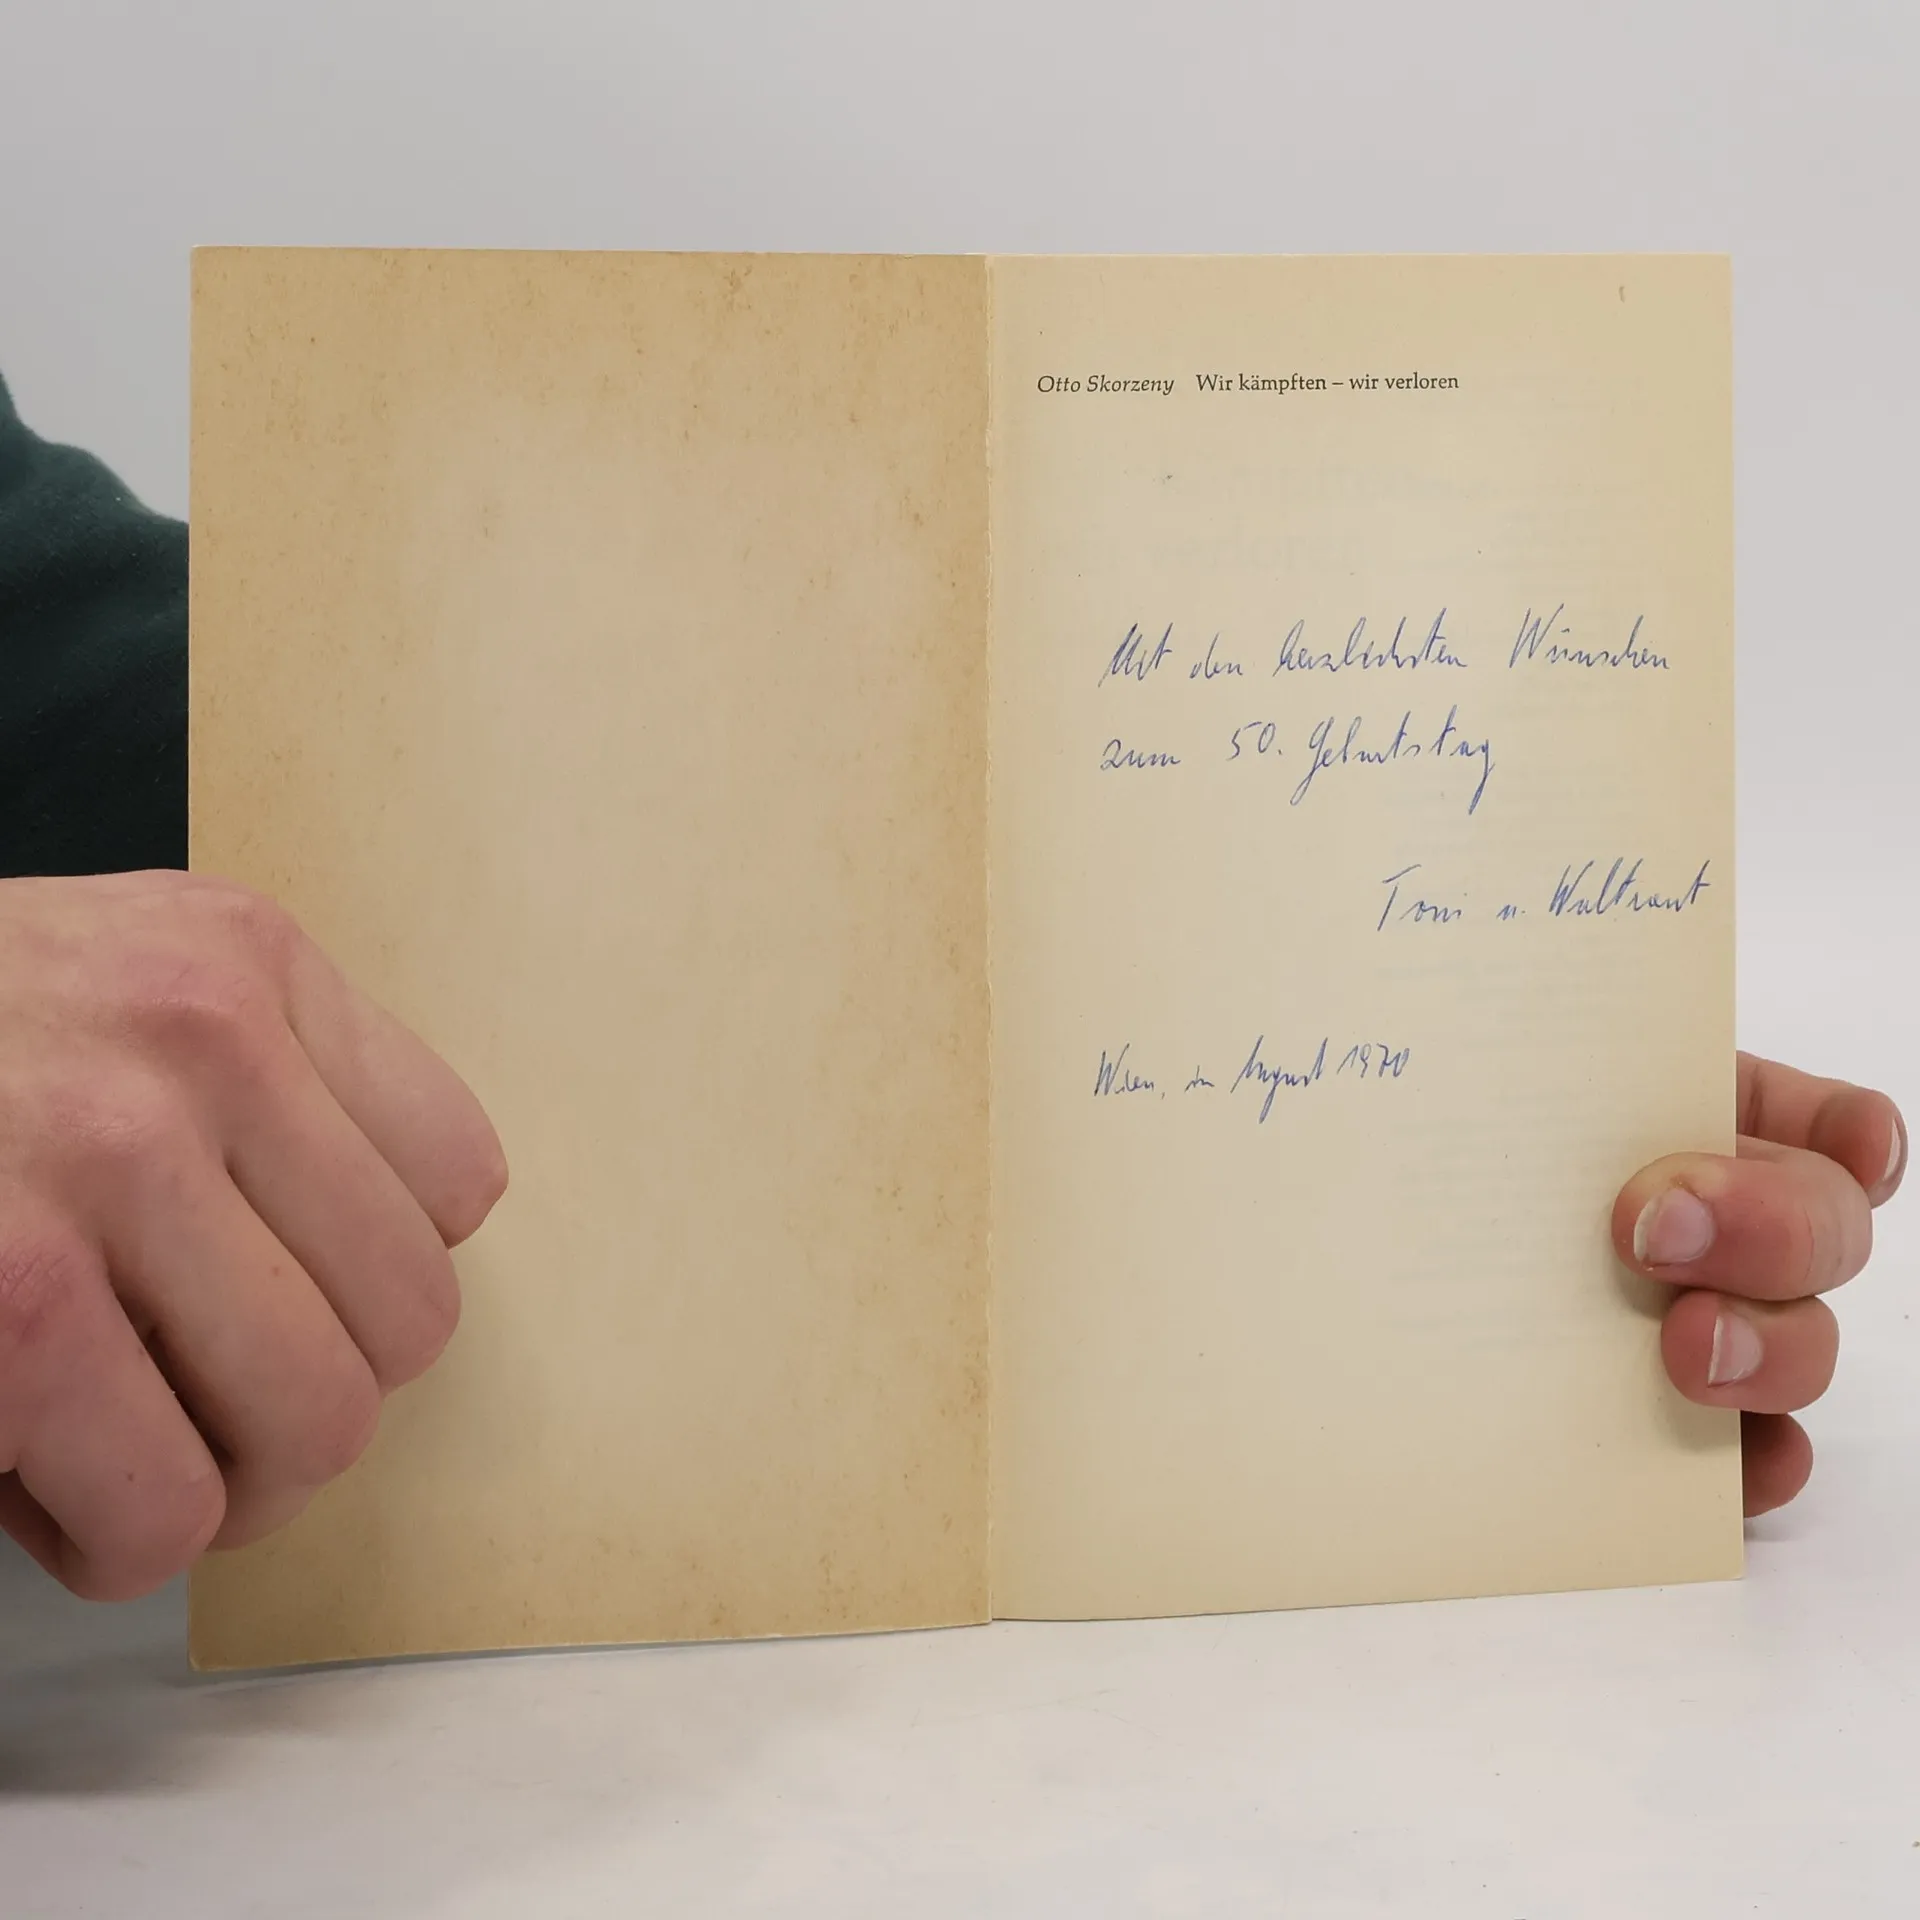 Otto Skorzeny Wir kämpften – wir verloren
Mit den herzlichsten Wünschen
zum 50. Geburtstag
Toni u. Waltraut
Wien, im August 1970